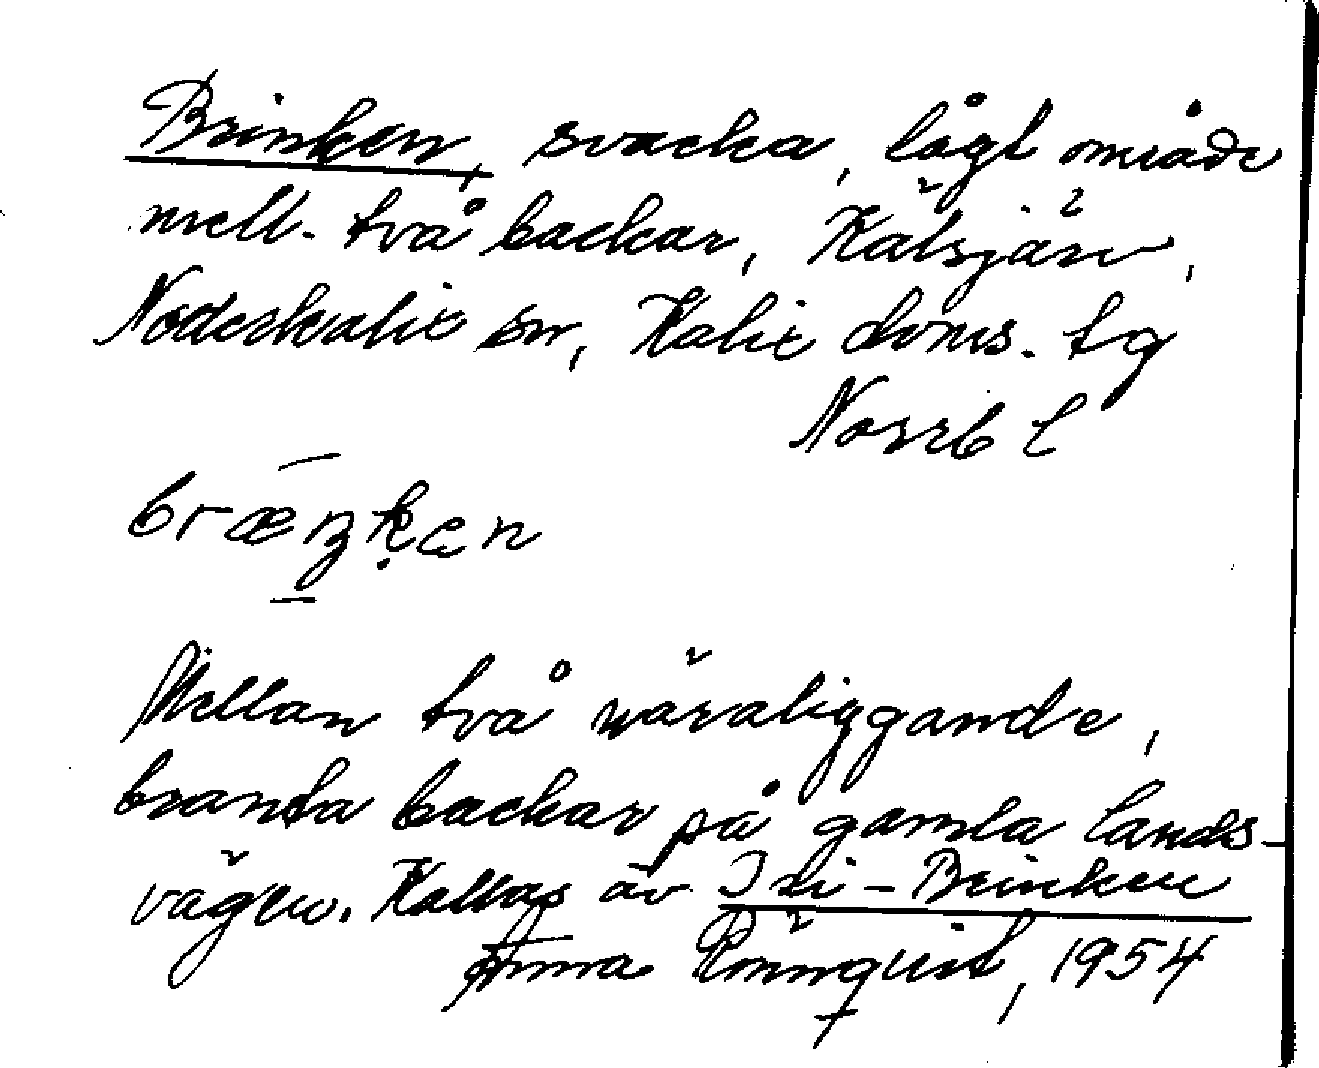 Brinken, svacka, lågt område
mell. två backar, Kälsjärv,
Nederkalix sn, Kalix doms. tg
Norrb l
bræŋken
Mellan två näraliggande,
branta backar på gamla lands-
vägen. Kallas äv. I - Brinken
Anna Rönnquist, 1954